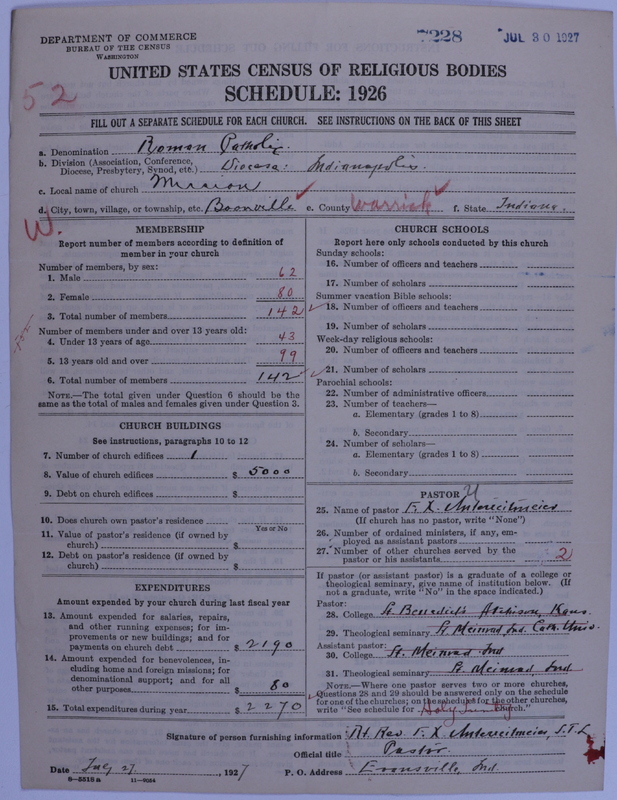 DEPARTMENT OF COMMERCE
BUREAU OF THE CENSUS
WASHINGTON
7228 JUL 30 1927
UNITED STATES CENSUS OF RELIGIOUS BODIES
52
SCHEDULE: 1926
FILL OUT A SEPARATE SCHEDULE FOR EACH CHURCH. SEE INSTRUCTIONS ON THE BACK OF THIS SHEET
a. Denomination Roman Catholic
b. Division (Association, Conference, Diocese, Presbytery, Synod, etc.) Diocese: Indianapolis.
c. Local name of church Mission
d. City, town, village, or township, etc. Boonville e. County Warrick f. State Indiana.
W.
MEMBERSHIP
Report number of members according to definition of
member in your church
Number of members, by sex:
1. Male 62
2. Female 80
3. Total number of members 142
Number of members under and over 13 years old:
4. Under 13 years of age 43
5. 13 years old and over 99
6. Total number of members 142
NOTE.—The total given under Question 6 should be the
same as the total of males and females given under Question 3.
CHURCH BUILDINGS
See instructions, paragraphs 10 to 12
7. Number of church edifices 1
8. Value of church edifices $ 5000
9. Debt on church edifices $
10. Does church own pastor's residence
Yes or No
11. Value of pastor's residence (if owned by
church) $
12. Debt on pastor's residence (if owned by
church) $
EXPENDITURES
Amount expended by your church during last fiscal year
13. Amount expended for salaries, repairs,
and other running expenses; for im-
provements or new buildings; and for
payments on church debt $ 2190
14. Amount expended for benevolences, in-
cluding home and foreign missions; for
denominational support; and for all
other purposes $ 80
15. Total expenditures during year $ 2270
CHURCH SCHOOLS
Report here only schools conducted by this church
Sunday schools:
16. Number of officers and teachers
17. Number of scholars
Summer vacation Bible schools:
18. Number of officers and teachers
19. Number of scholars
Week-day religious schools:
20. Number of officers and teachers
21. Number of scholars
Parochial schools:
22. Number of administrative officers
23. Number of teachers—
a. Elementary (grades 1 to 8)
b. Secondary
24. Number of scholars—
a. Elementary (grades 1 to 8)
b. Secondary
PASTOR
25. Name of pastor F. X. Unterreitmeier
(If church has no pastor, write "None")
26. Number of ordained ministers, if any, em-
ployed as assistant pastors
27. Number of other churches served by the
pastor or his assistants 2
If pastor (or assistant pastor) is a graduate of a college or
theological seminary, give name of institution below. (If
not a graduate, write "No" in the space indicated.)
Pastor:
28. College St. Benedict's Atchison, Kans.
29. Theological seminary St. Meinrad Ind. Cath. Univ.
Assistant pastor:
30. College St. Meinrad Ind
31. Theological seminary St. Meinrad, Ind.
NOTE.—Where one pastor serves two or more churches,
Questions 28 and 29 should be answered only on the schedule
for one of the churches; on the schedules for the other churches,
write "See schedule for Holy Trinity Church."
Signature of person furnishing information Rt. Rev. F. X. Unterreitmeier, S.T.L
Official title Pastor.
Date July 27, 1927 P. O. Address Evansville, Ind.
8—5519a 11—9054